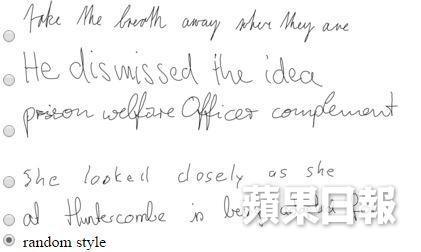 take the breath away when they are
He dismissed the idea
prison welfare Officer complement
She looked closely as she
at Huntercombe is being
蘋果日報
random style